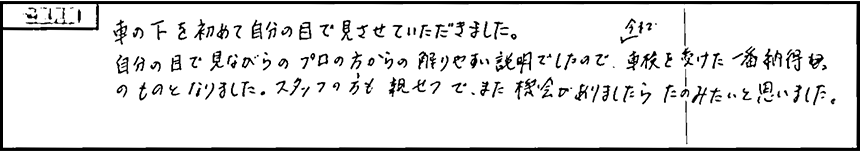 車の下を初めて自分の目で見させていただきました。
今まで
自分の目で見ながらのプロの方からの解りやすい説明でしたので、車検を受けた一番納得
のものとなりました。スタッフの方も親せつで、また機会がありましたらたのみたいと思いました。